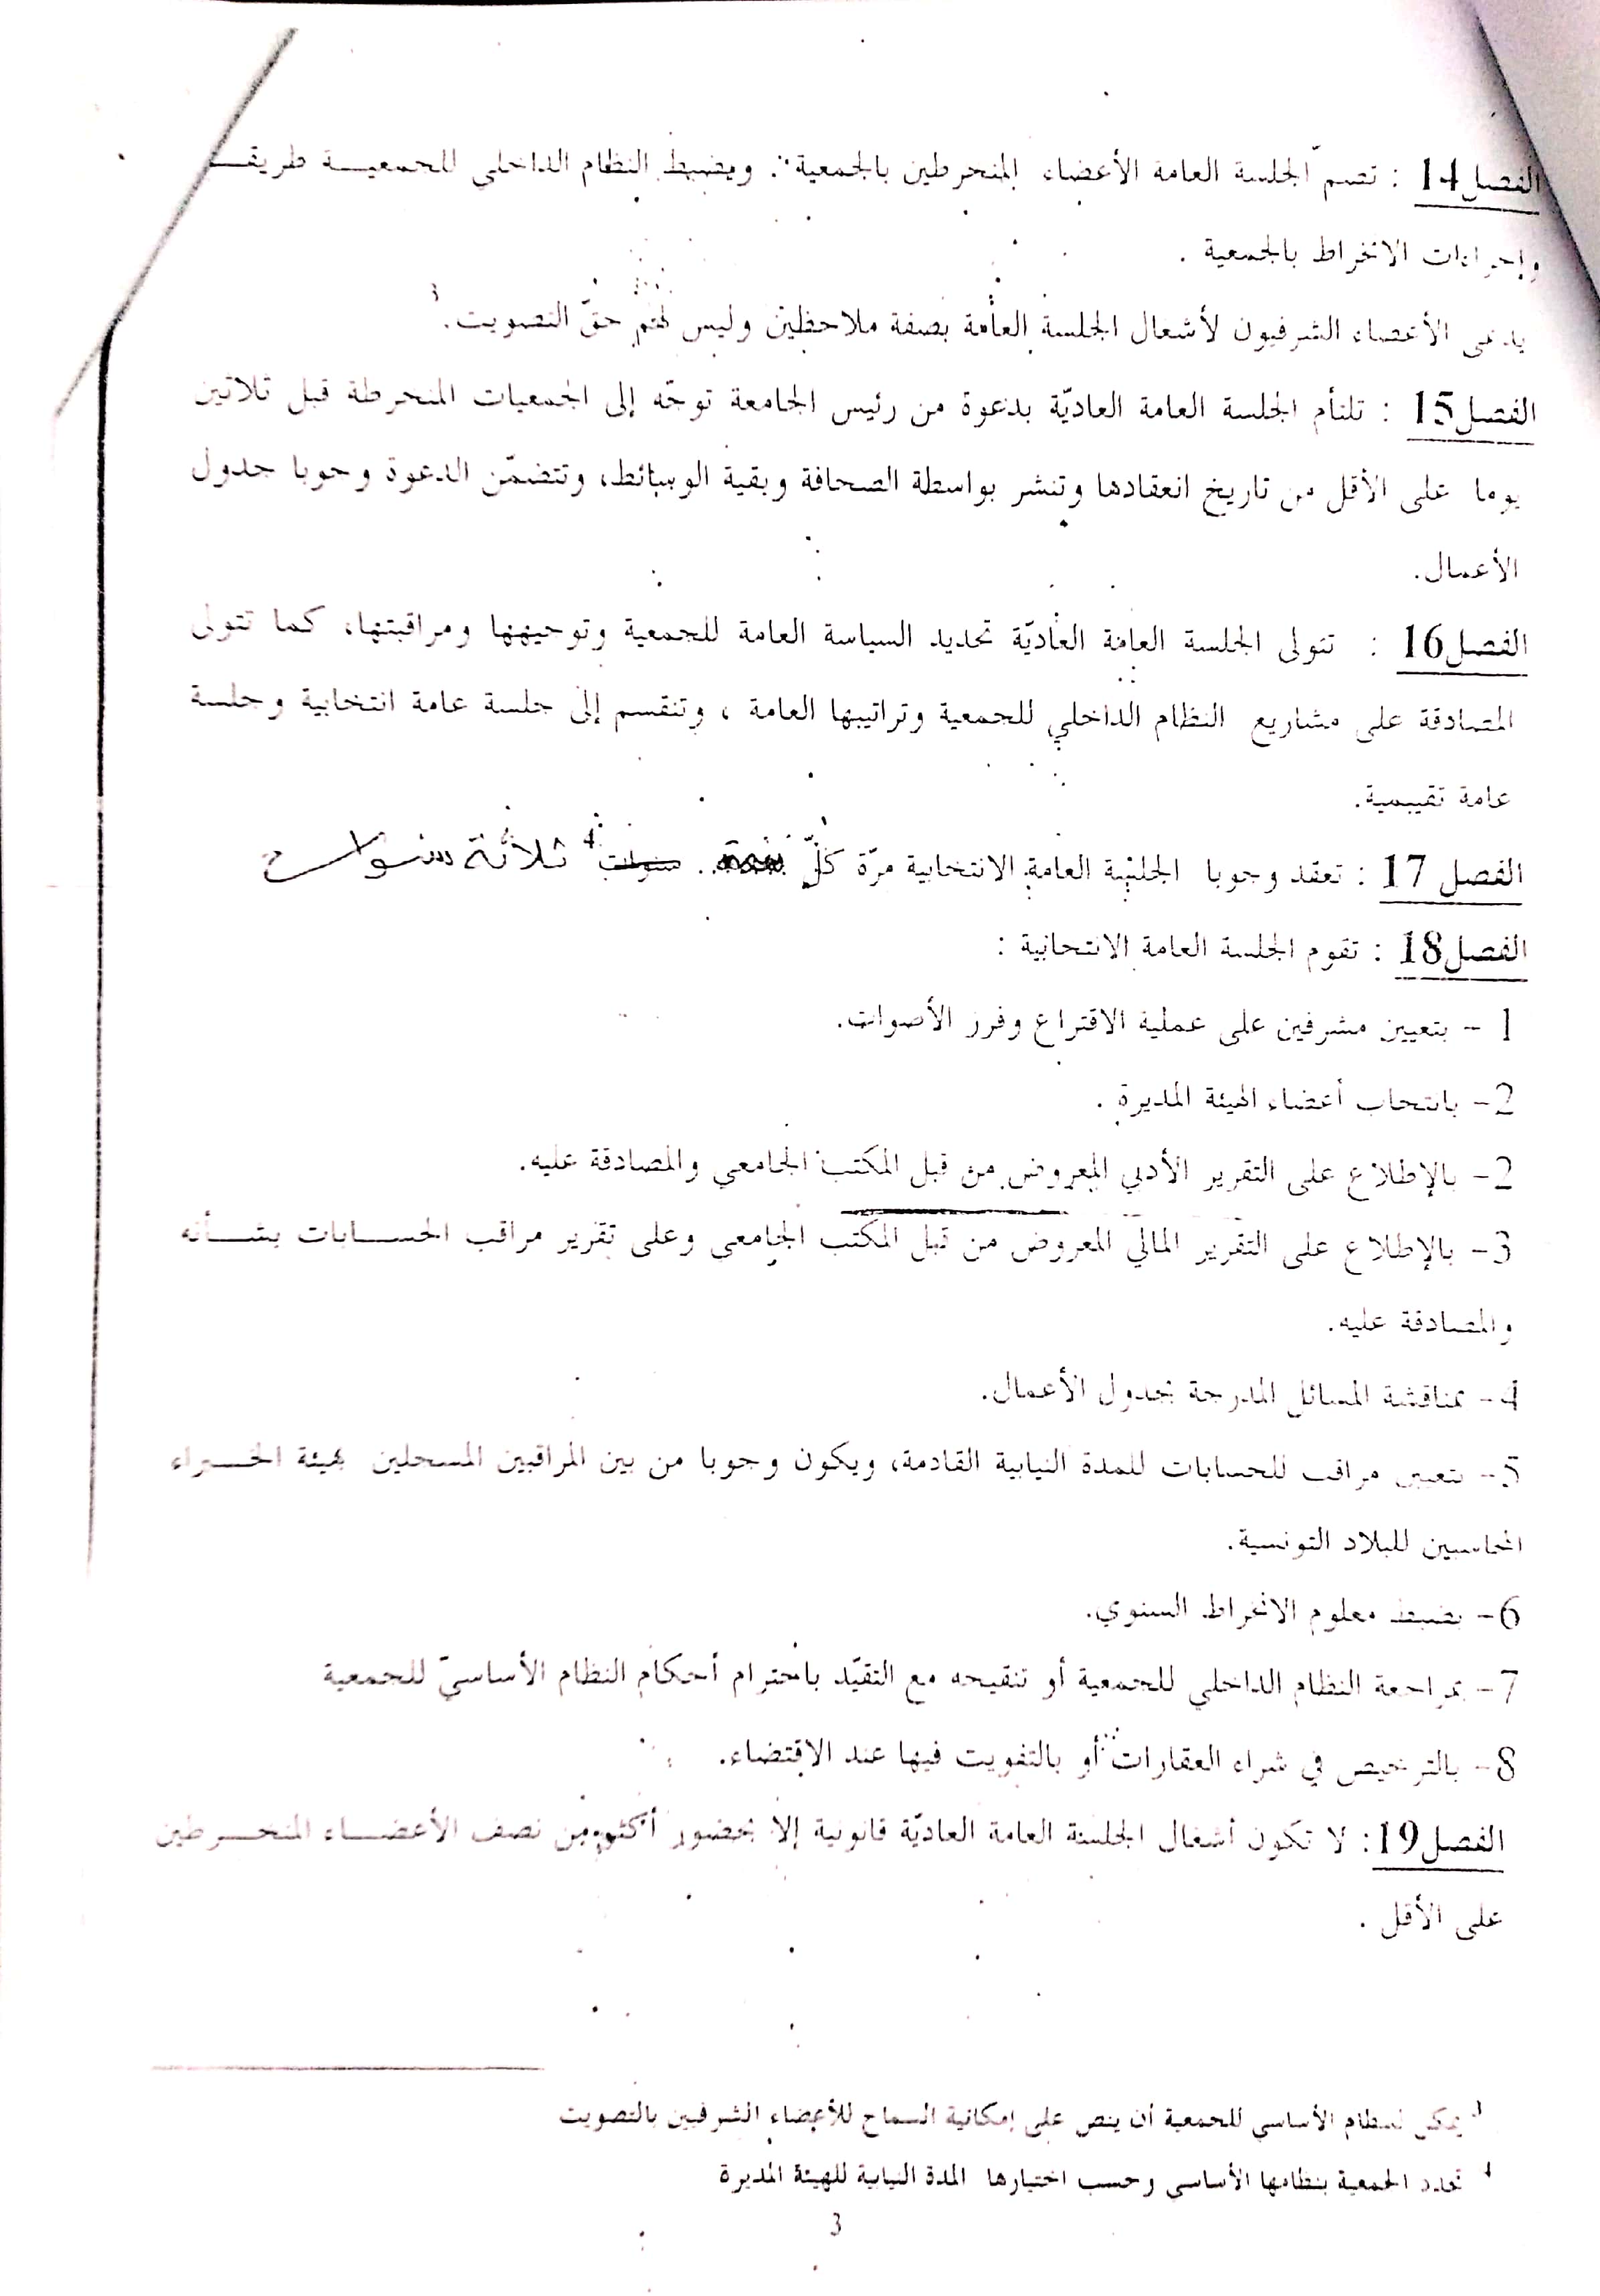 الفصل14 : تضمّ الجلسة العامة الأعضاء المنخرطين بالجمعية. ويضبط النظام الداخلي للجمعيـــة طريقـــة
وإجراءات الانخراط بالجمعية .
يدعى الأعضاء الشرفيون لأشغال الجلسة العامة بصفة ملاحظين وليس لهم حقّ التصويت.3
الفصل15 : تلتأم الجلسة العامة العاديّة بدعوة من رئيس الجامعة توجّه إلى الجمعيات المنخرطة قبل ثلاثين
يوما على الأقل من تاريخ انعقادها وتنشر بواسطة الصحافة وبقية الوسائط، وتتضمّن الدعوة وجوبا جدول
الأعمال.
الفصل16 : تتولى الجلسة العامة العاديّة تحديد السياسة العامة للجمعية وتوجيهها ومراقبتها، كما تتولى
المصادقة على مشاريع النظام الداخلي للجمعية وتراتيبها العامة ، وتنقسم إلى جلسة عامة انتخابية وجلسة
عامة تقييمية.
الفصل 17 : تعقد وجوبا الجلسة العامة الانتخابية مرّة كلّ سنوات4 ثلاثة سنوات
الفصل18 : تقوم الجلسة العامة الانتخابية :
1 - بتعيين مشرفين على عملية الاقتراع وفرز الأصوات.
2- بانتخاب أعضاء الهيئة المديرة .
2- بالإطلاع على التقرير الأدبي المعروض من قبل المكتب الجامعي والمصادقة عليه.
3- بالإطلاع على التقرير المالي المعروض من قبل المكتب الجامعي وعلى تقرير مراقب الحســـابات بشـــأنه
والمصادقة عليه.
4- بمناقشة المسائل المدرجة بجدول الأعمال.
5- بتعيين مراقب للحسابات للمدة النيابية القادمة، ويكون وجوبا من بين المراقبين المسجلين بهيئة الخـــبراء
المحاسبين للبلاد التونسية.
6- بضبط معلوم الانخراط السنوي.
7- بمراجعة النظام الداخلي للجمعية أو تنقيحه مع التقيّد باحترام أحكام النظام الأساسيّ للجمعية
8- بالترخيص في شراء العقارات أو بالتفويت فيها عند الاقتضاء.
الفصل19: لا تكون أشغال الجلسة العامة العاديّة قانونية إلا بحضور أكثر من نصف الأعضـــاء المنخـــرطين
على الأقل .
3 يمكن للنظام الأساسي للجمعية أن ينص على إمكانية السماح للأعضاء الشرفيين بالتصويت
4 تحدد الجمعية بنظامها الأساسي وحسب اختيارها المدة النيابية للهيئة المديرة
3